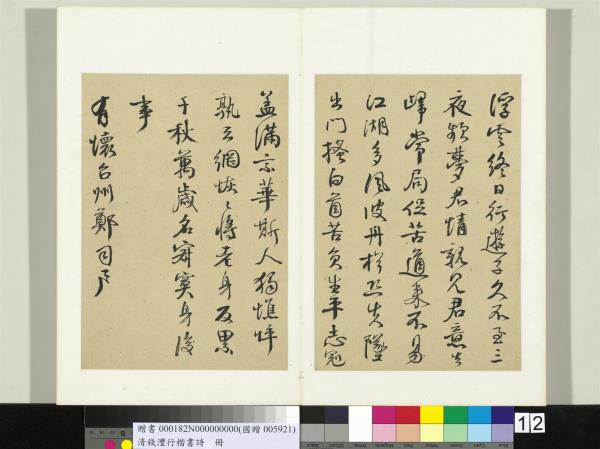 浮雲終日行遊子久不至三
夜頻夢君情親見君意告
歸常局促苦道來不易
江湖多風波舟楫恐失墜
出門搔白首苦負平生志冠
蓋滿京華斯人獨憔悴
孰云網恢〻將老身反累
千秋萬歲名寂寞身後
事
有懷台州鄭司戶
贈書 000182N000000000(國贈 005921)
清錢灃行楷書詩　冊
12